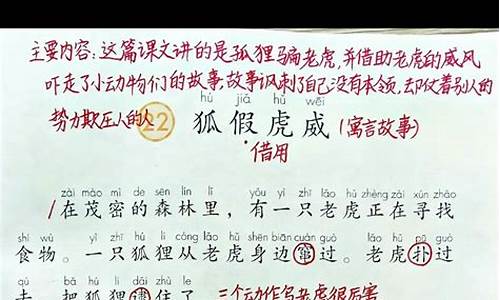 主要内容：这篇课文讲的是狐狸骗老虎，并借助老虎的威风
吓走了小动物们的故事，故事讽刺了自己没有本领，却仗着别人的
势力欺压人的人
hú jiǎ hǔ wēi
22 狐假虎威（寓言故事）
借用
zài mào mì de sēn lín lǐ yǒu yì zhī lǎo hǔ zhèng zài xún zhǎo
1在茂密的森林里，有一只老虎正在寻找
shí wù yì zhī hú li cóng lǎo hǔ shēn biān cuàn guò lǎo hǔ pū guò
食物。一只狐狸从老虎身边窜过。老虎扑过
qù bǎ hú li dǎi zhù le
去，把狐狸逮住了。三个动作写老虎很厉害